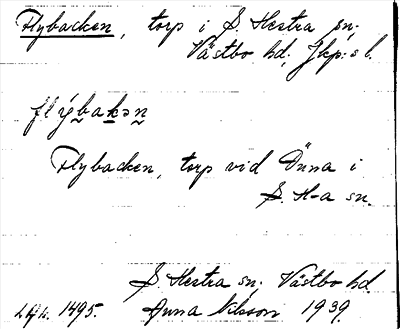 Flybacken, torp i S. Hestra sn.
Västbo hd. Jkp:s l.
flýbakən
Flybacken, torp vid Önna i
S. H-a sn.
S. Hestra sn. Västbo hd.
1495. Anna Nilsson 1939